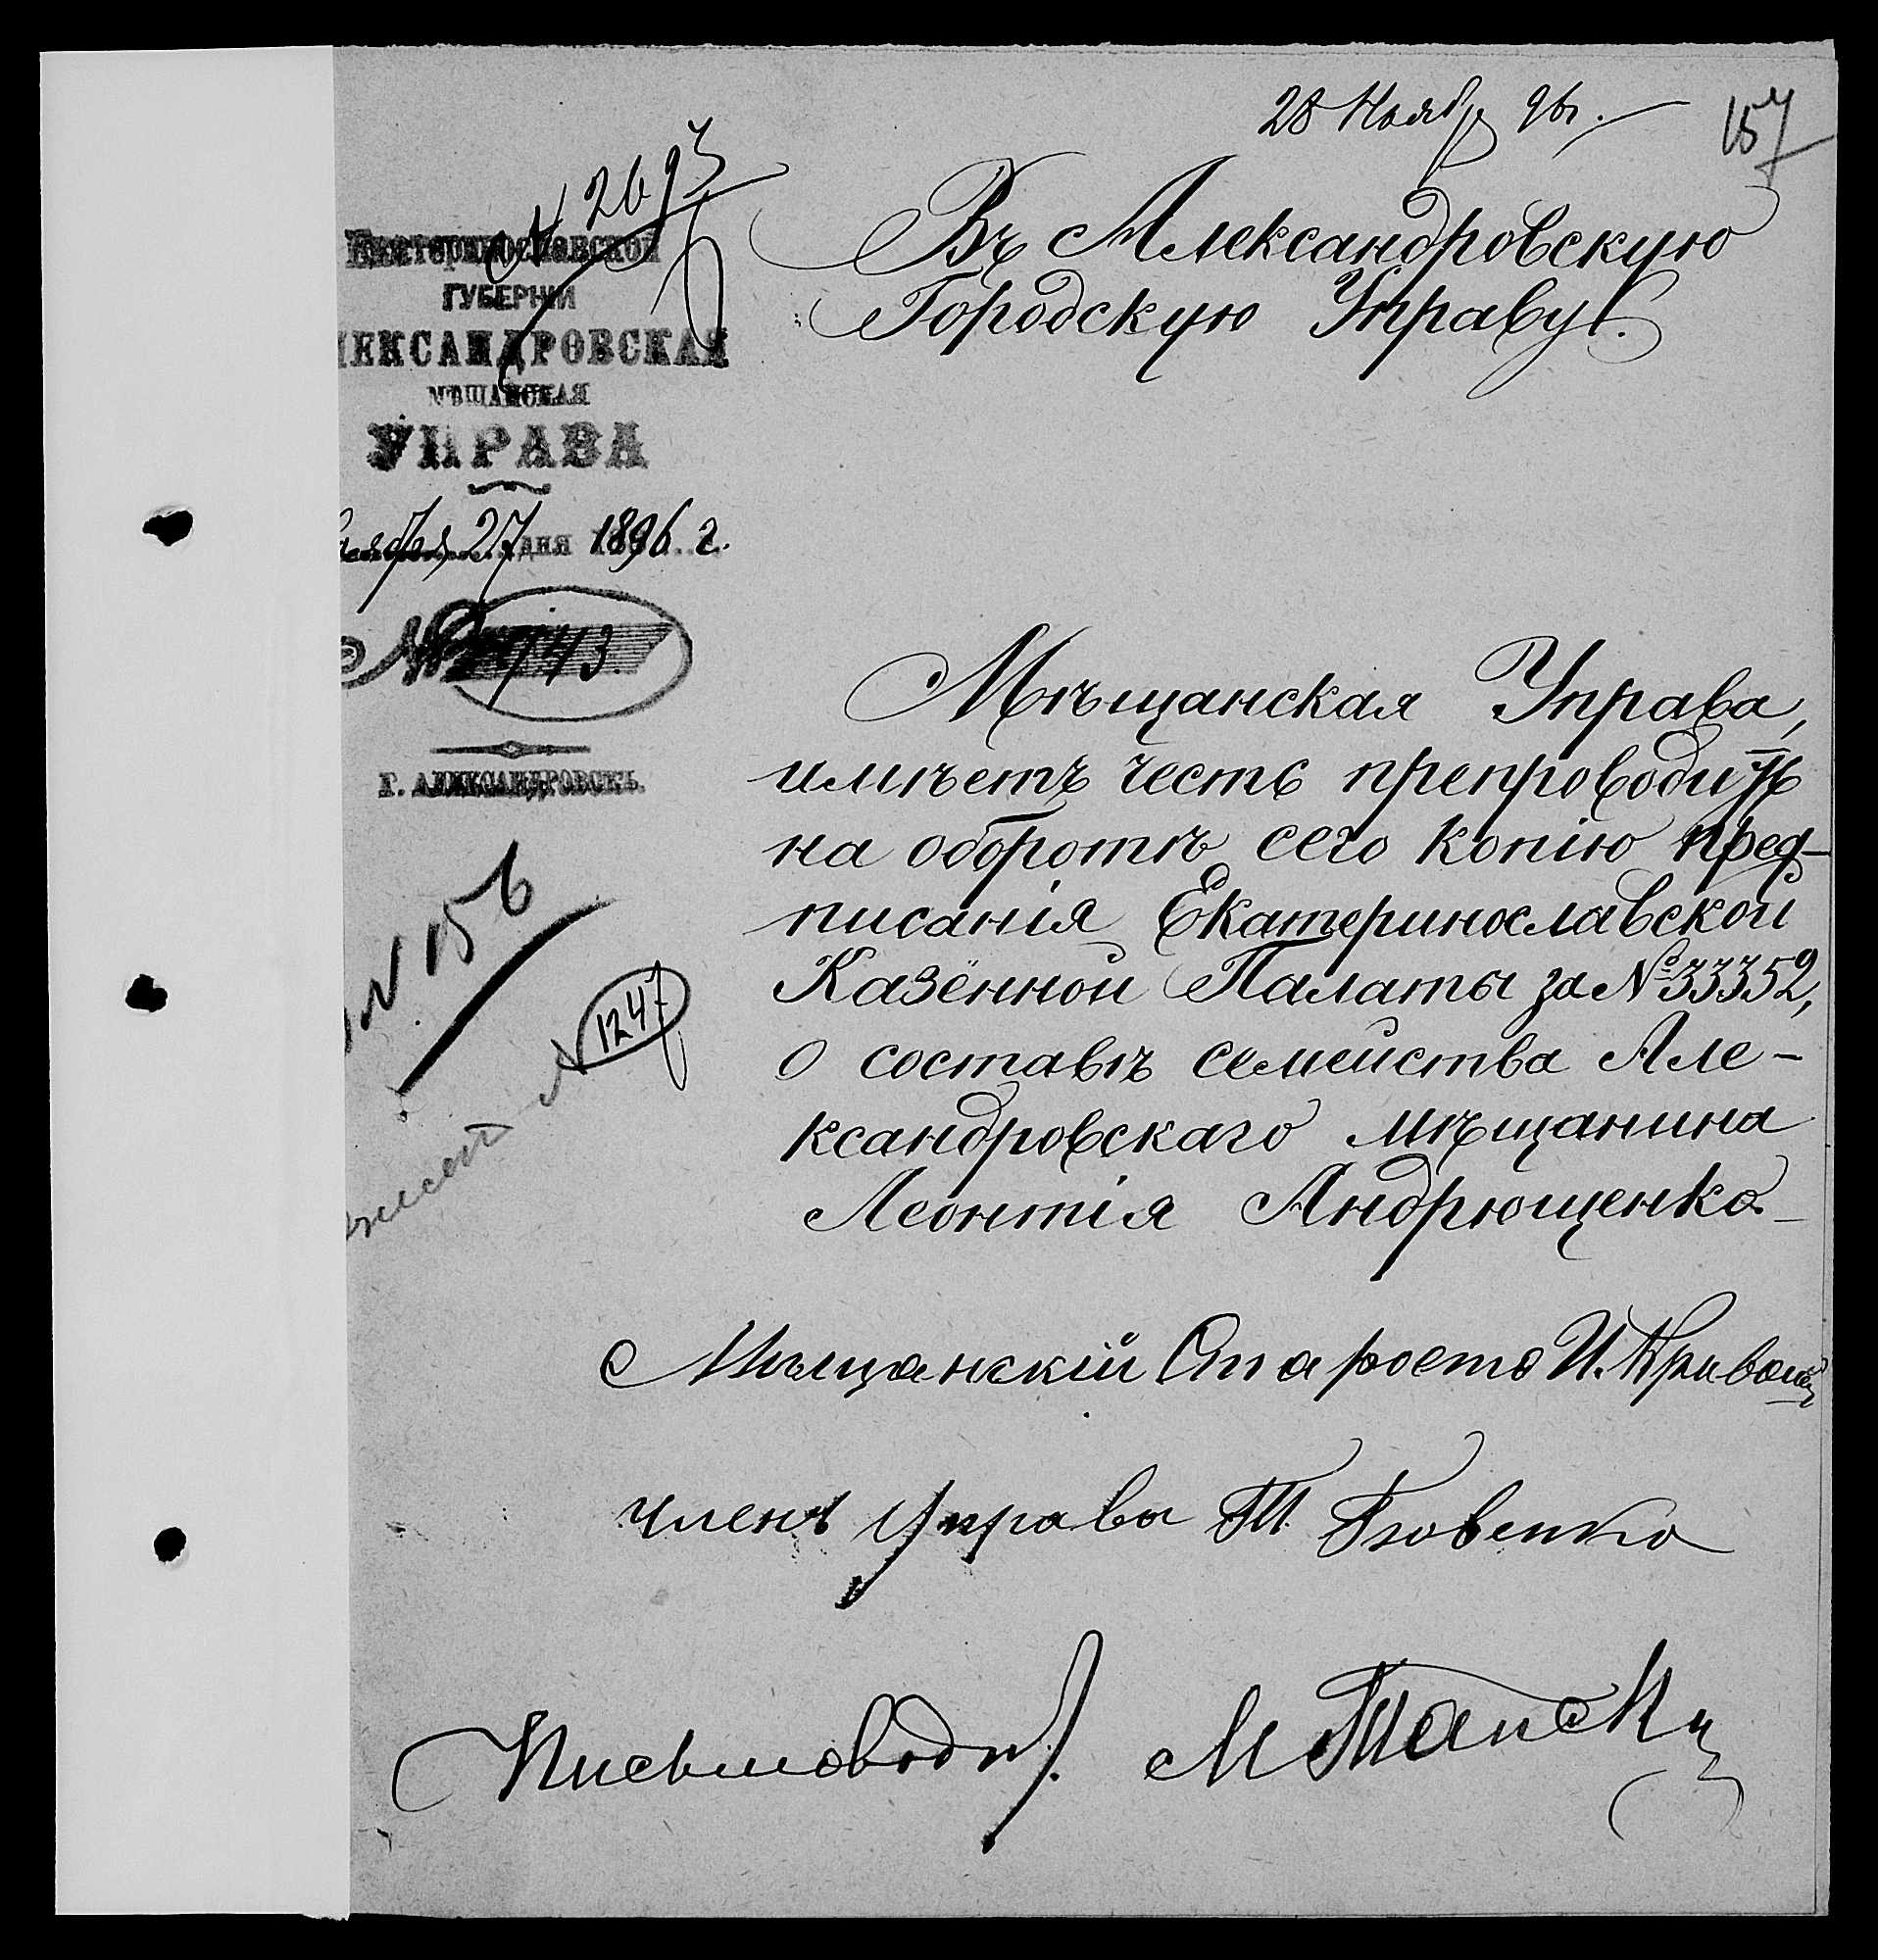 28 Ноябр 96 г.
157
№ 2693
Екатеринославской
ГУБЕРНІИ
ЛЕКСАНДРОВСКАЯ
МѢЩАНСКАЯ
УПРАВА
ноября 27 дня 1896 г.
№ 743
Г. АЛЕКСАНДРОВСКЪ.
Въ Александровскую
Городскую Управу.
Мѣщанская Управа,
имѣетъ честь препроводить
на оборотѣ сего копію пред-
писанія Екатеринославской
Казенной Палаты за № 33352,
о составѣ семейства Але-
ксандровскаго мѣщанина
Леонтія Андрющенко
№ 156
№ 1247
Мѣщанскій Староста И.
Членъ Управы
Письмоводит. М